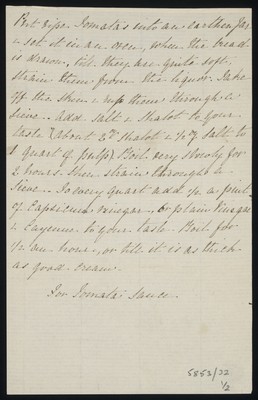 Put ripe Tomata's into an earthen Jar
& set it in an oven, when the bread
is drawn, till they are quite soft,
strain them from the liquor. Take
off the skin & rub them through a
sieve.. Add salt & Shalot to your
taste (about 2ᵈ shalot & ½ oz salt to
1 quart of pulp) Boil very slowly for
2 hours then strain through a
Sieve.. To every quart add ½ a pint
of Capsicum vinegar, or plain vinegar
& cayenne to your taste. Boil for
½ an hour, or till it is as thick
as good cream.
For Tomata Sauce.
5853/22
1/2